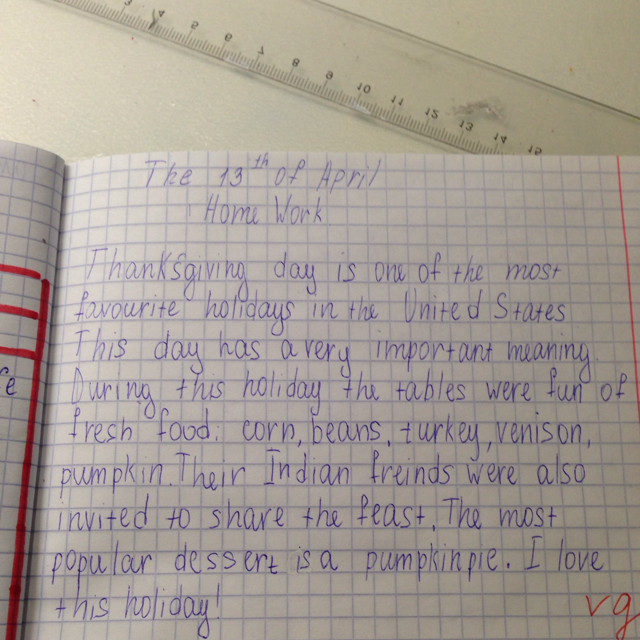 5 6 7 8 9 10 11 12 13 14
The 13th of April
Home Work
Thanksgiving day is one of the most
favourite holidays in the United States
This day has a very important meaning.
During this holiday the tables were fun of
fresh food: corn, beans, turkey, venison,
pumpkin. Their Indian freinds were also
invited to share the feast. The most
popular dessert is a pumpkinpie. I love
this holiday!
vg